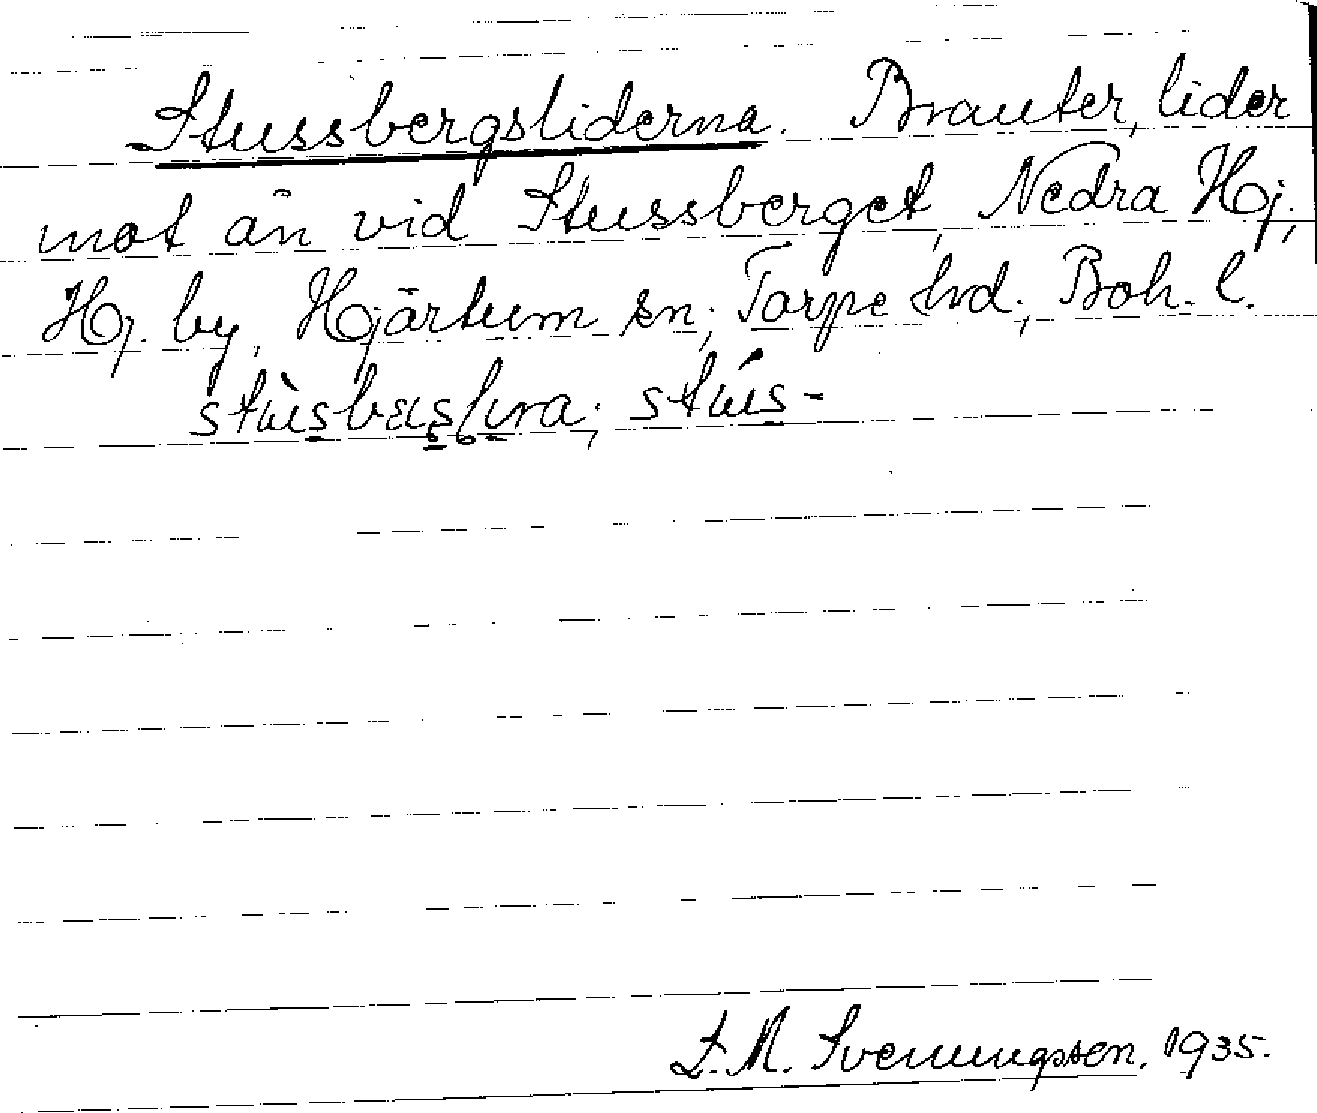 Stussbergsliderna. Branter, lider
mot ån vid Stussberget, Nedra Hj.,
Hj. by, Hjärtum sn; Torpe hd; Boh. l.
stùs-
F. M. Svenungsson. 1935.